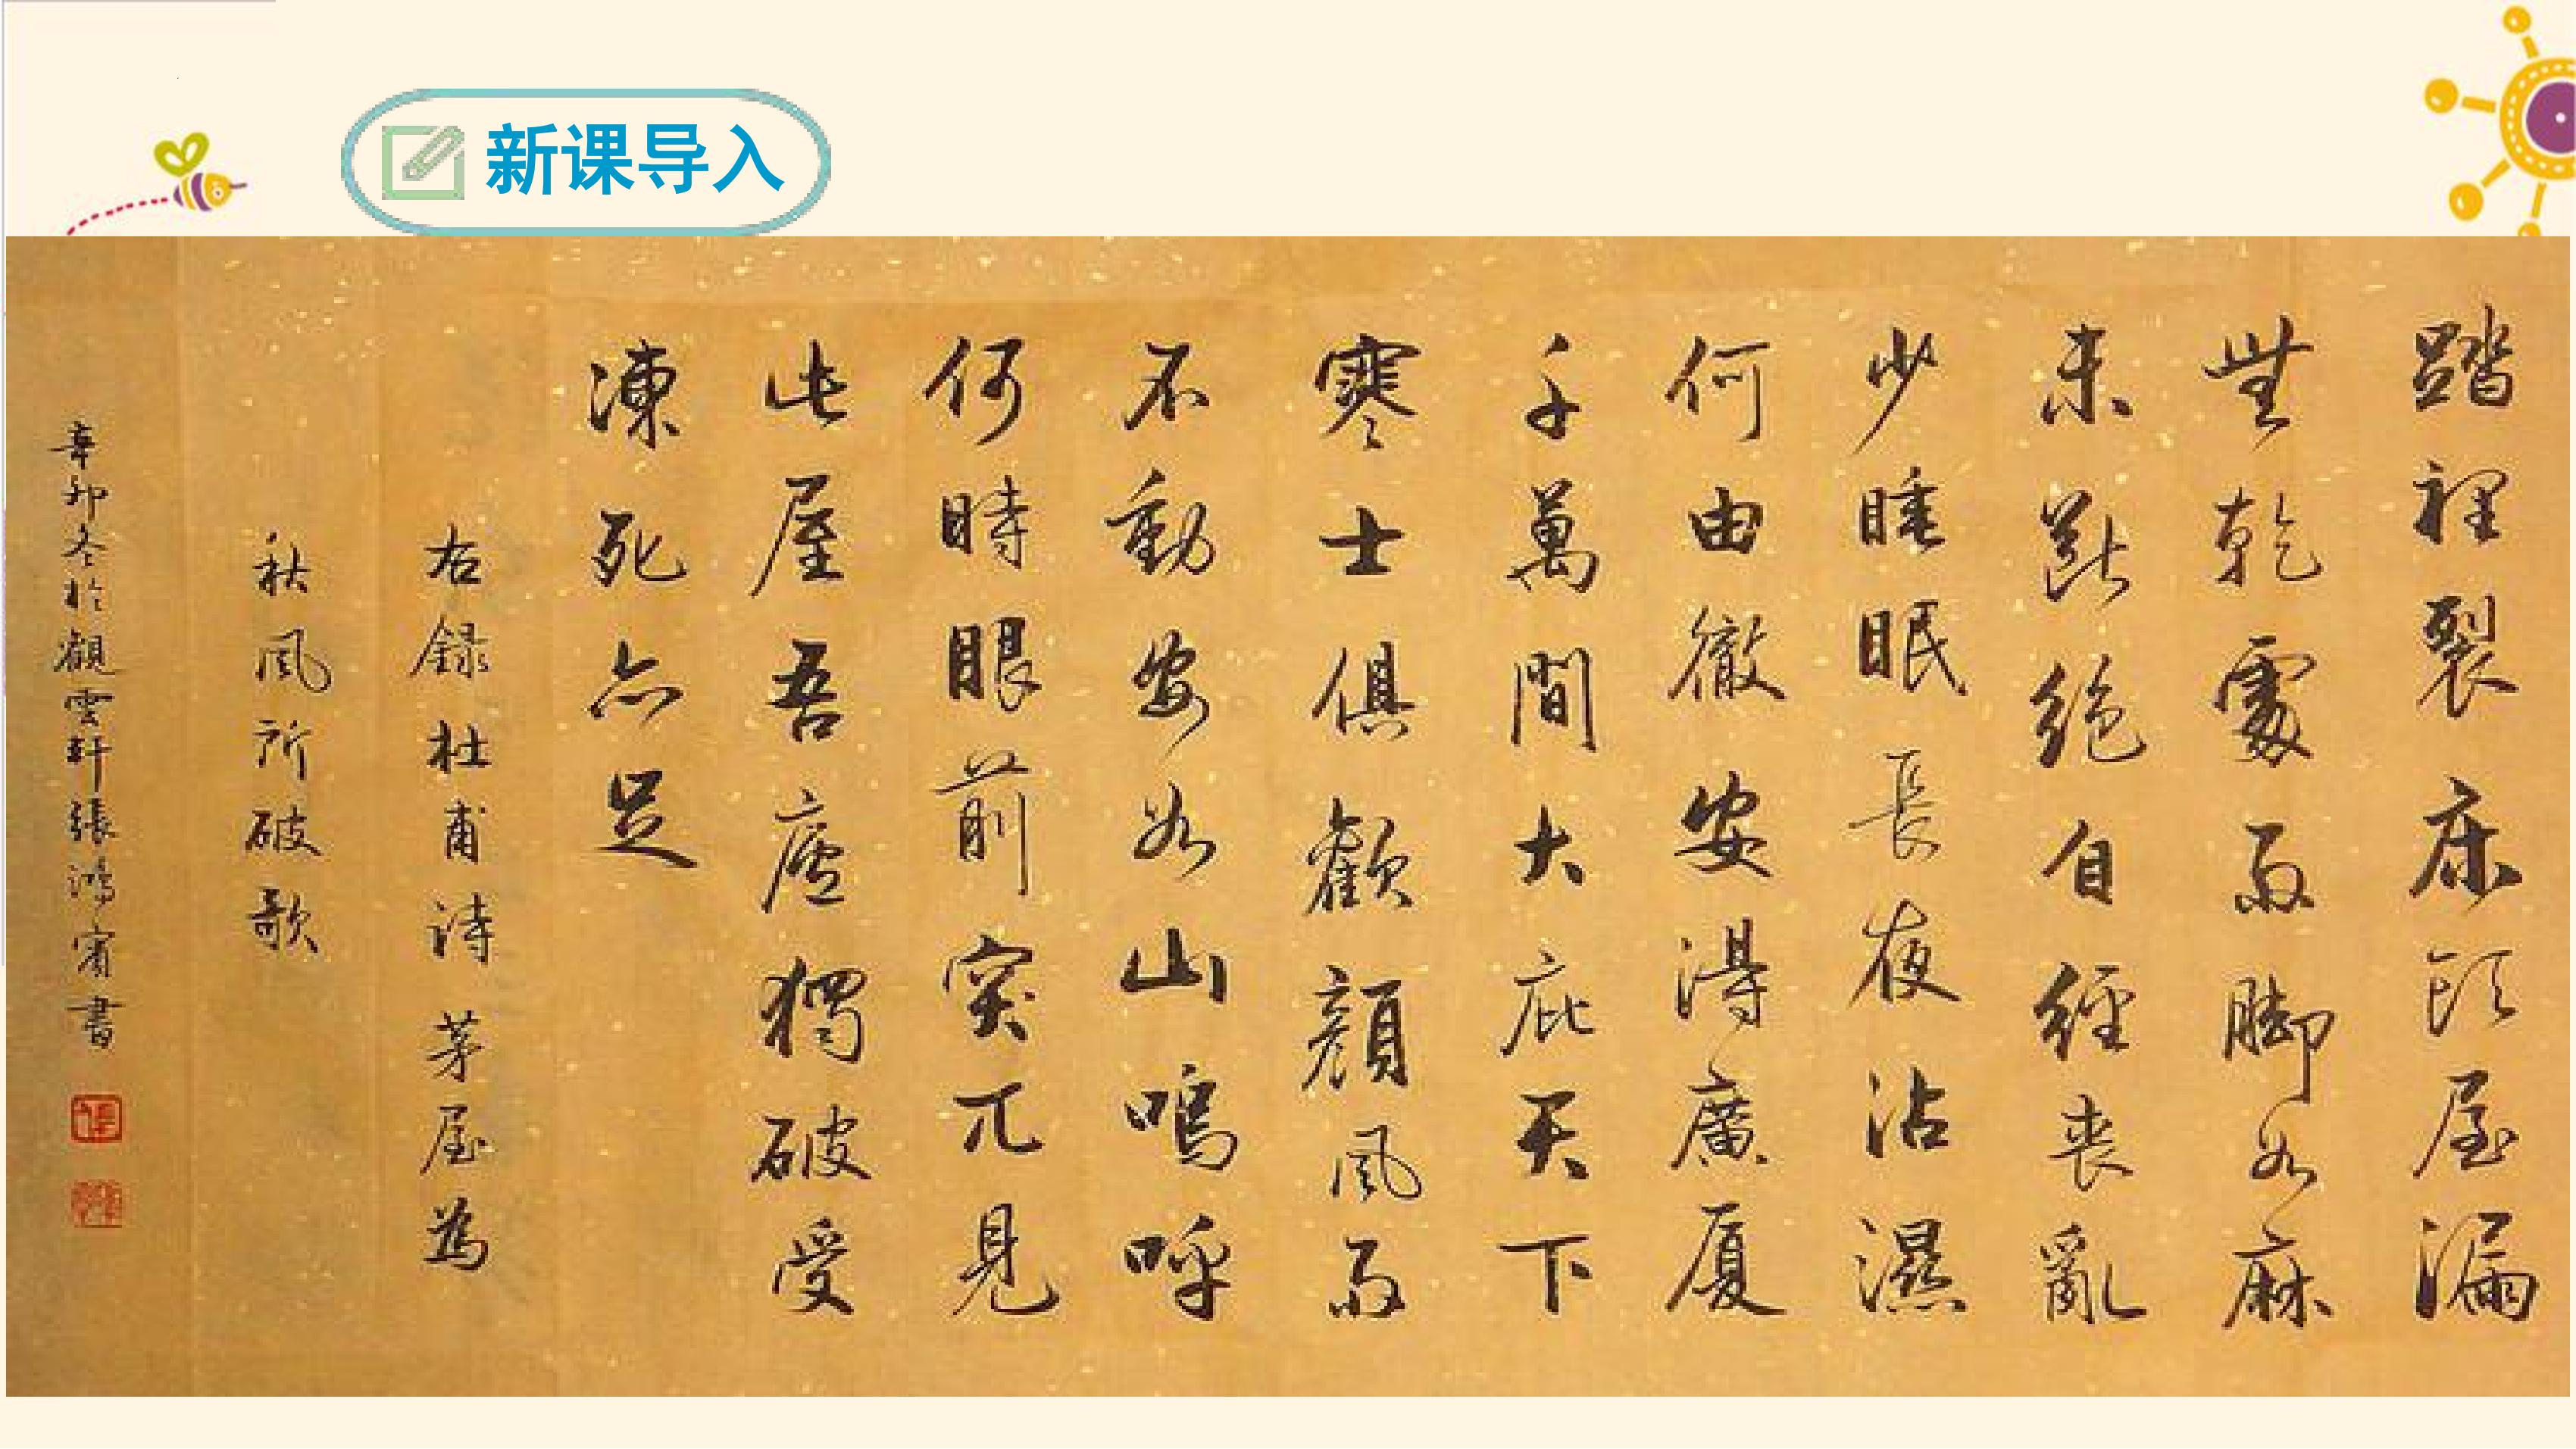 新课导入
踏裡裂床頭屋漏
無乾處雨脚如麻
未斷絕自經喪亂
少睡眠長夜沾濕
何由徹安得廣厦
千萬間大庇天下
寒士俱歡顏風雨
不動安如山嗚呼
何時眼前突兀見
此屋吾廬獨破受
凍死亦足
右録杜甫詩茅屋為
秋風所破歌
辛卯冬於觀雲軒張鴻賓書